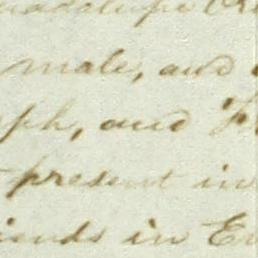 male, and
ph, and
present in
iends in